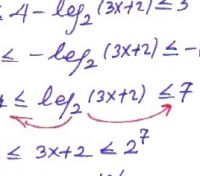 ≤ 4 - log₂(3x+2) ≤ 3
≤ -log₂(3x+2) ≤ -
≤ log₂(3x+2) ≤ 7
≤ 3x+2 ≤ 2⁷